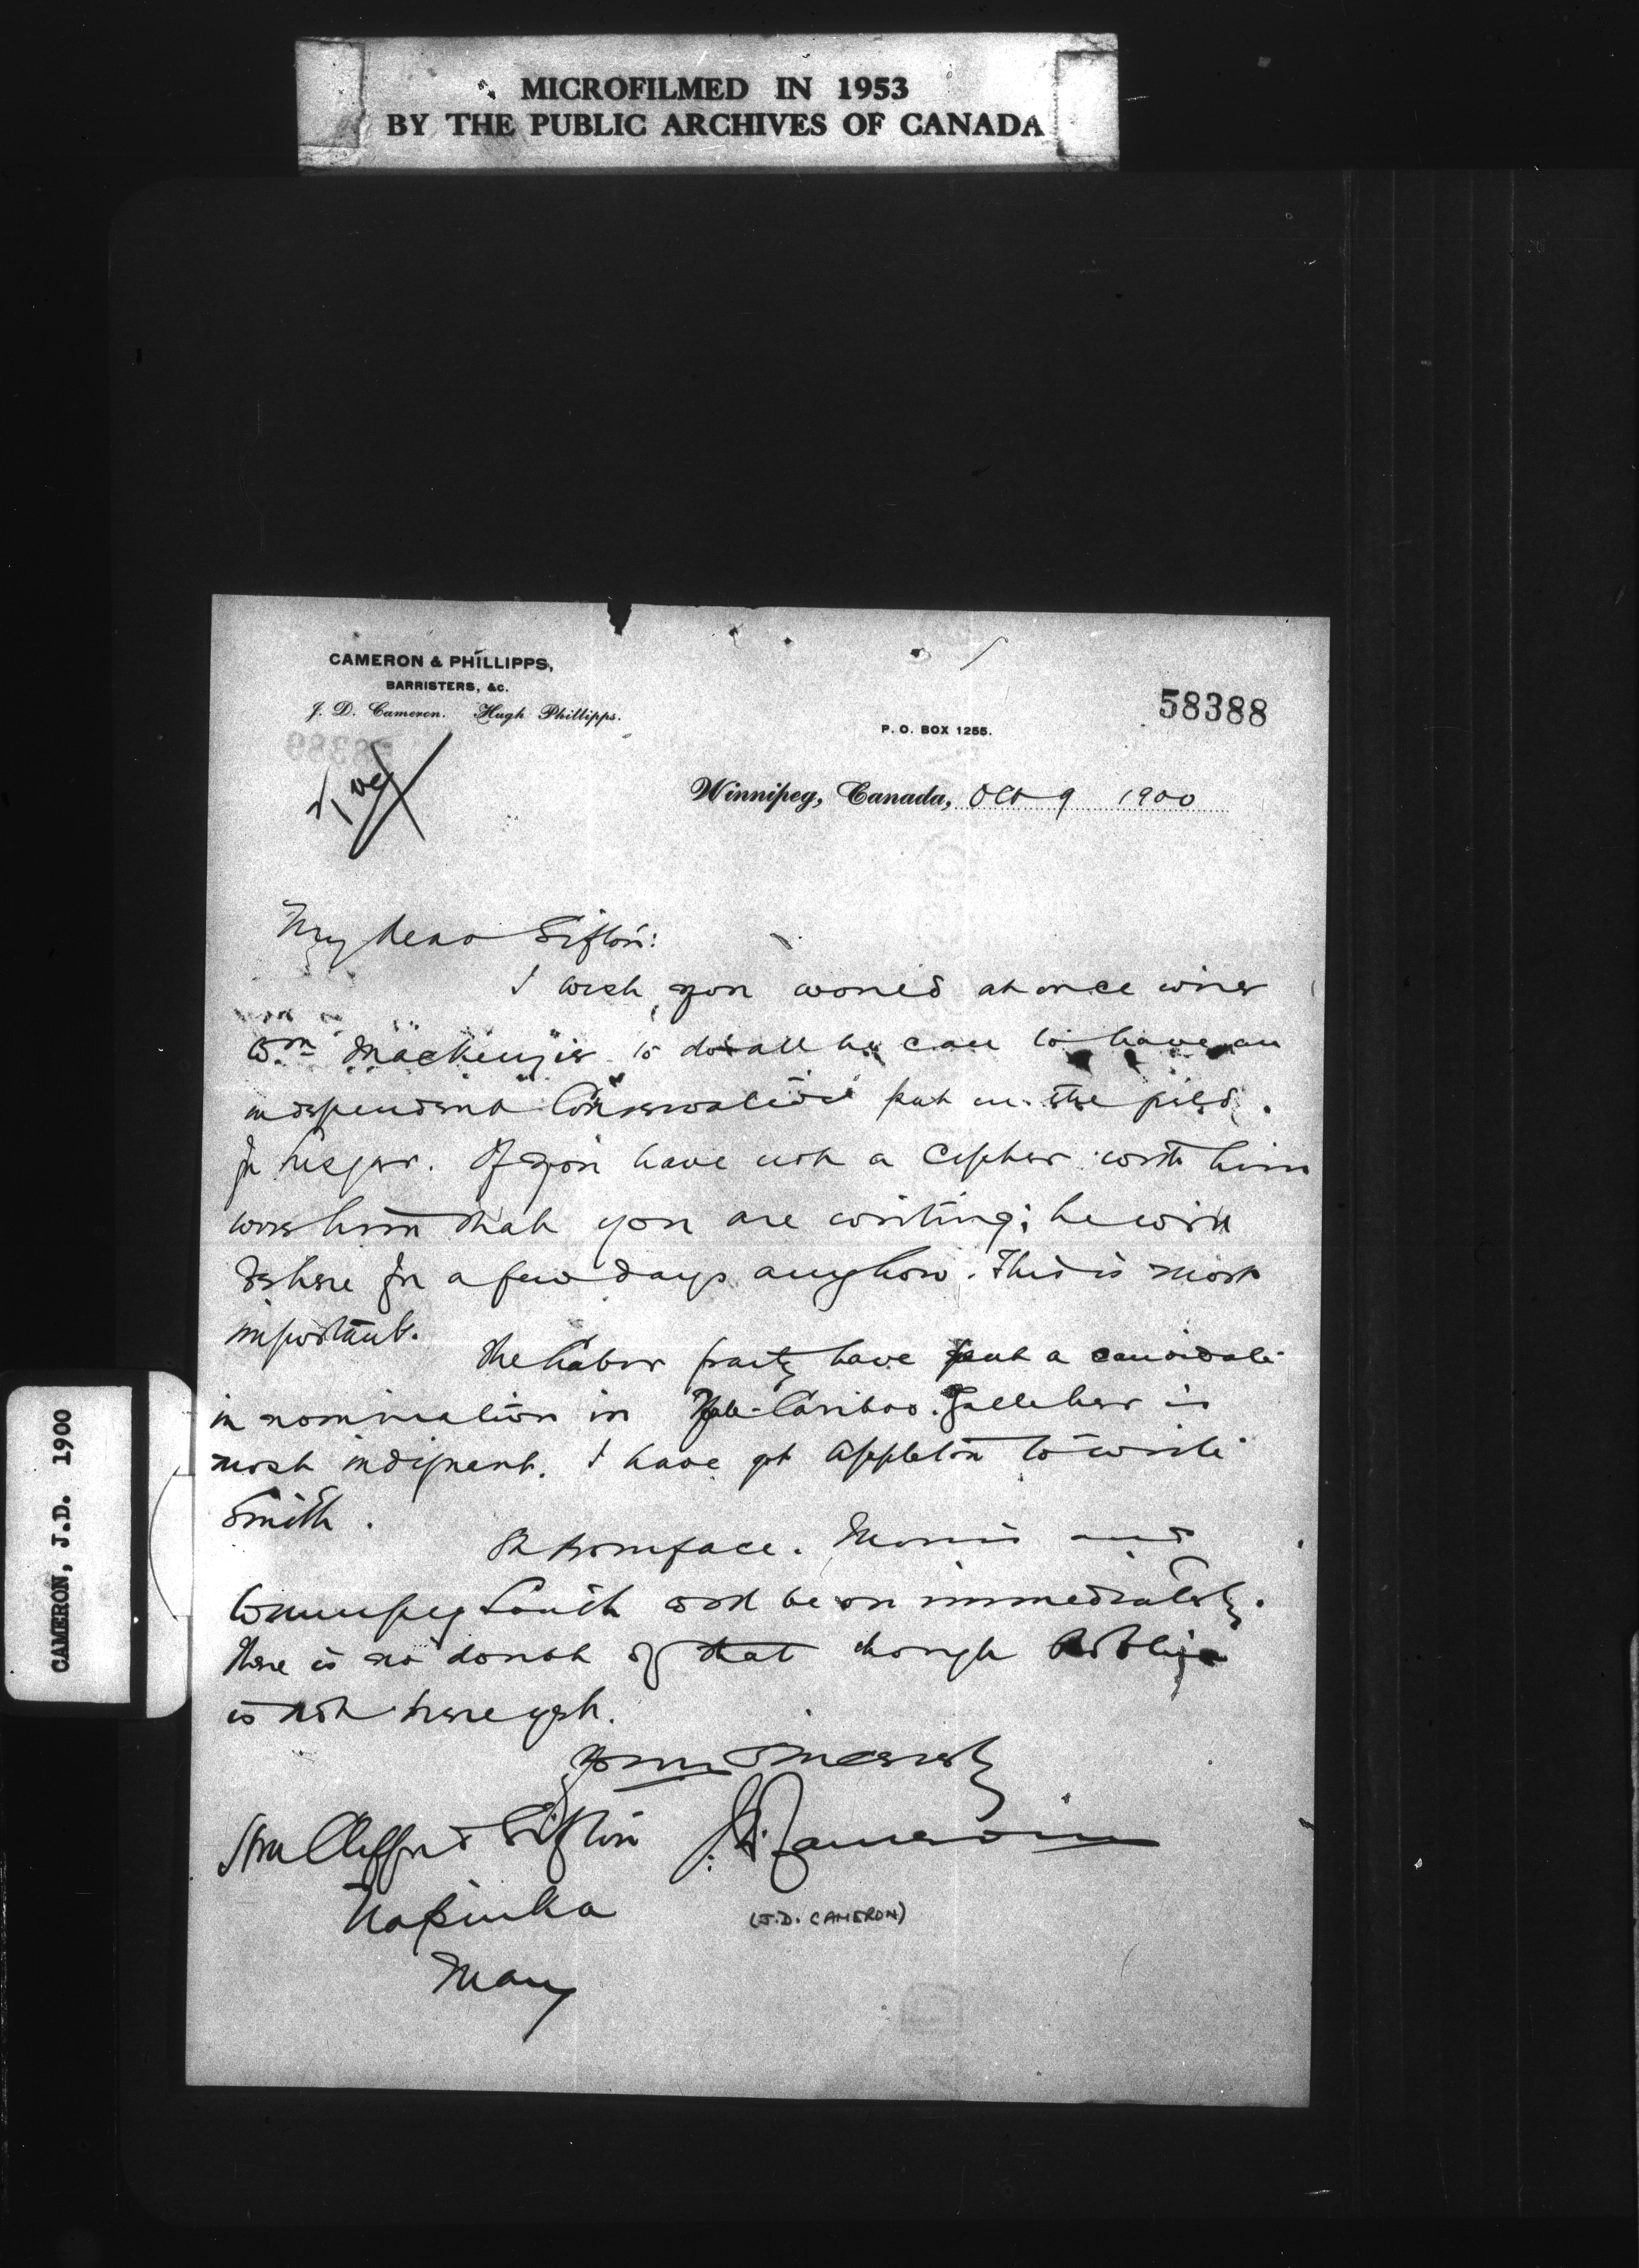 MICROFILMED IN 1953
BY THE PUBLIC ARCHIVES OF CANADA
CAMERON & PHILLIPPS,
BARRISTERS, &c.
J. D. Cameron. Hugh Phillipps.
58388
P. O. BOX 1255.
Winnipeg, Canada, Oct 9 1900
My dear Sifton:
I wish you would at once wire
Wm Mackenzie to do all he can to have an
independent Conservative put in the field
in Lisgar. If you have not a cipher with him
wire him that you are writing; he will
be here in a few days anyhow. This is most
important.
The Labor party have put a candidate
in nomination in Yale-Cariboo. Galleher is
most indignant. I have got Appleton to write
Smith.
St Boniface. Morris and
Winnipeg South will be on immediately.
There is no doubt of that though Roblin
is not here yet.
Yours sincerely
J.D. Cameron
Hon Clifford Sifton
Napinka
Man
(J.D. CAMERON)
CAMERON, J.D. 1900